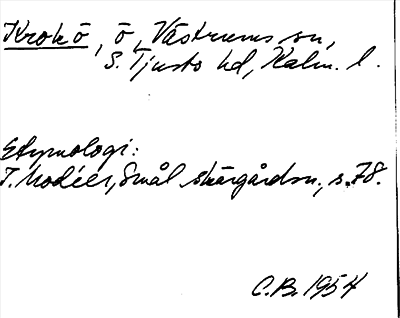 Krokö, ö, Västrums sn,
S. Tjusto hd, Kalm. l.
Etymologi:
I. Modéer, Smål skärgårdsn., s. 78.
C.B. 1954